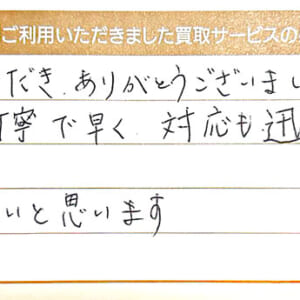 ご利用いただきました買取サービスの
だき、ありがとうございまし
丁寧で早く、対応も迅
いと思います